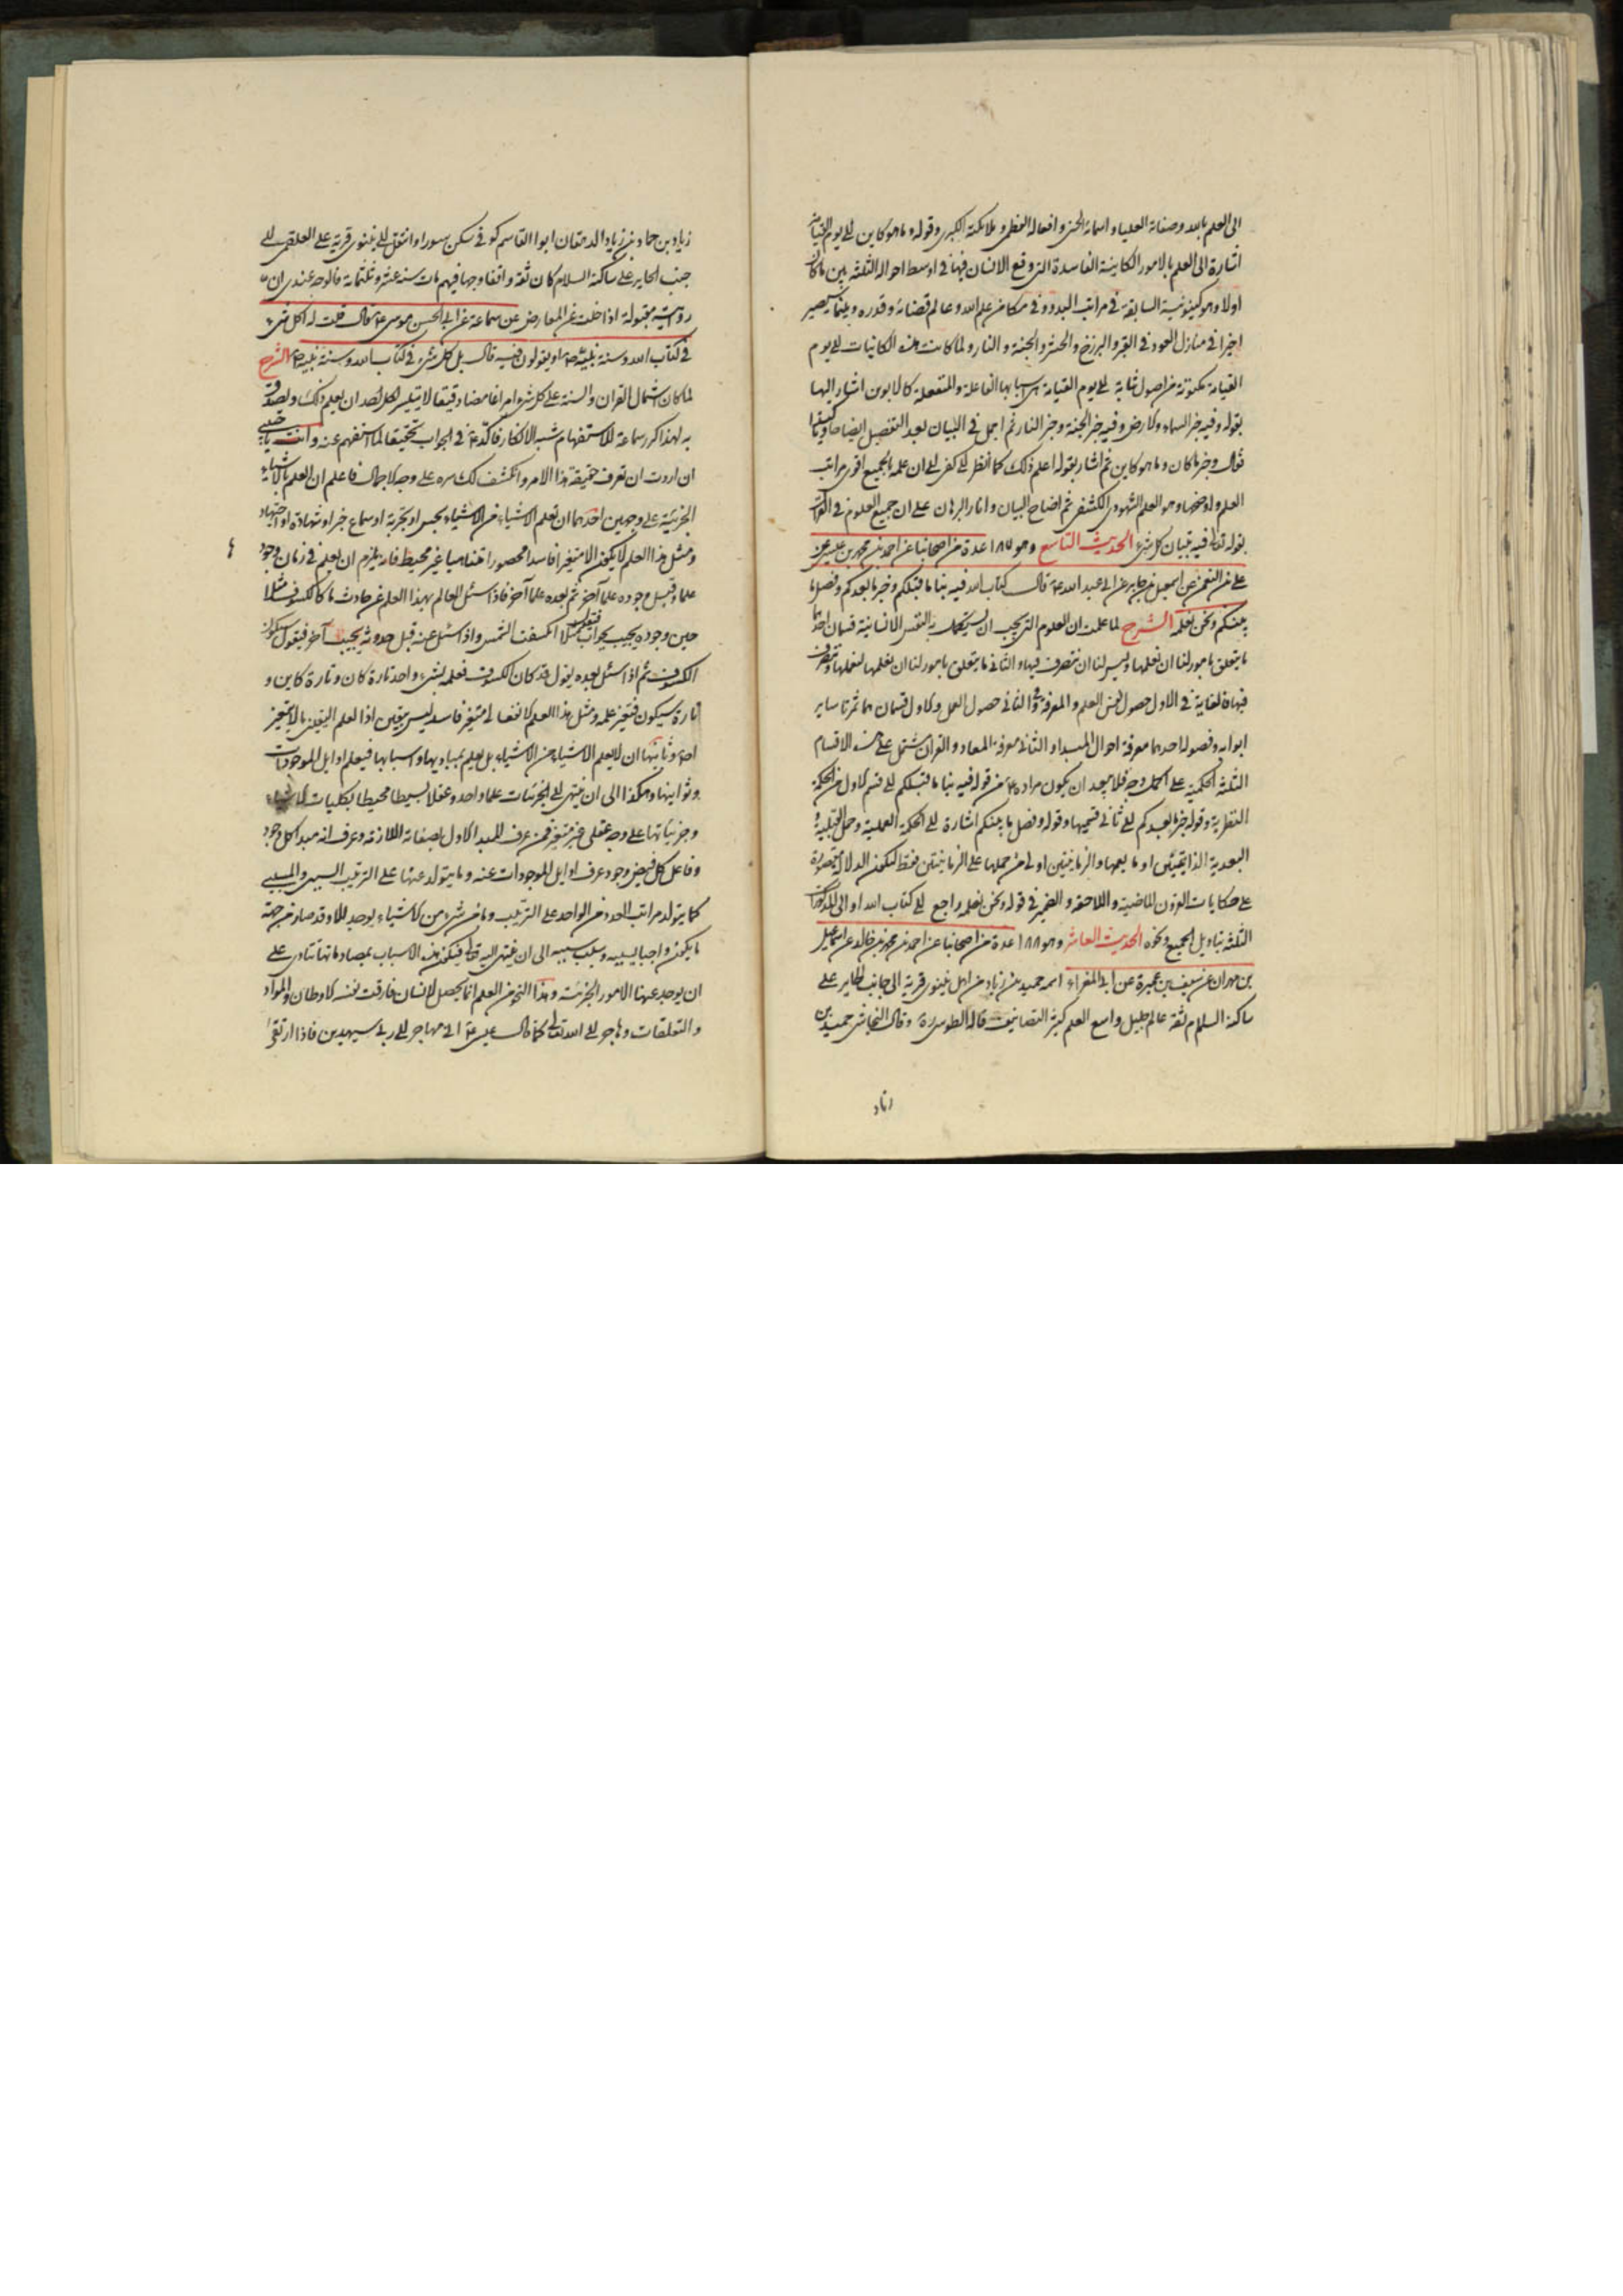 الى العلم بالله وصفاته العليا و اسمائه الحسنى و افعاله العظمى و ملائكته الكبرى و قوله و ما هو كاين الى يوم القيامة
اشارة الى العلم بالامور الكاينة الفاسدة التى وقع الانسان فيها فى اوسط احواله الثلثة بين ما كان
اولا و هو كينونية السابقة فى مراتب البدو و فى مكامن علم الله و عالم قضائه و قدره و بين ما يصير
اخيرا فى منازل العود فى القبر و البرزخ و الحشر و الجنة و النار و لما كانت هذه الكائنات الى يوم
القيامة مكونة من اصول ثابتة الى يوم القيامة هى اسبابها الفاعلة و المنفعلة كالابوين اشار اليها
بقوله و فيه خبر السماء و الارض و فيه خبر الجنة و خبر النار ثم اجمل فى البيان بعد التفصيل ايضاحا و تاكيدا
فقال و خبر ما كان و ما هو كاين ثم اشار بقوله اعلم ذلك كما انظر الى كفى الى ان علمه بالجميع اقوى مراتب
العلم و اوضحها و هو العلم الشهودى الكشفى ثم اضاح البيان و انار البرهان على ان جميع العلوم فى القران
بقوله تعالى فيه تبيان كل شىء الحديث التاسع و هو ١٨٧ عدة من اصحابنا عن احمد بن محمد بن عيسى عن
على بن النعمن عن اسمعيل بن جابر عن ابى عبد الله ع قال كتاب الله فيه نبأ ما قبلكم و خبر ما بعدكم و فصل ما
بينكم و نحن نعلمه الشرح لما علمت ان العلوم التى يجب ان يستكمل به النفس الانسانية قسمان احدهما
ما يتعلق بامور لنا ان نعلمها و ليس لنا ان نتصرف فيها و الثانى ما يتعلق بامور لنا ان نعلمها لنعملها و نتصرف
فيها فالغاية فى الاول حصول نفس العلم و المعرفة و فى الثانى حصول العمل و للاول قسمان هما ثمرتا ساير
ابوابه و فصوله احدهما معرفة احوال المبدا و الثانى معرفة المعاد و القران مشتمل على هذه الاقسام
الثلثة الحكمية على اكمل وجه فلا يبعد ان يكون مراده ع من قوله فيه نبأ ما قبلكم الى قسم الاول من الحكمة
النظرية و قوله خبر ما بعدكم الى ثانى قسميها و قوله و فصل ما بينكم اشارة الى الحكمة العملية و حمل القبلية و
البعدية الذاتيتين او ما يعمها و الزمانيتين اولى من حملها على الزمانيتين فقط لتكون الدلالة مقصورة
على حكايات القرون الماضية و اللاحقة و الضمير فى قوله و نحن نعلمه راجع الى كتاب الله او الى المذكورات
الثلثة بتاويل الجميع و نحوه الحديث العاشر و هو ١٨٨ عدة من اصحابنا عن احمد بن محمد بن خالد عن اسماعيل
بن مهران عن سيف بن عميرة عن ابى المغرا اسمه حميد بن زياد من اهل نينوى قرية الى جانب الحاير على
ساكنه السلام ثقة عالم جليل واسع العلم كثير التصانيف قاله الطوسى ره و قال النجاشى حميد بن
زياد
زياد بن حماد بن زياد الدهقان ابو القاسم كوفى سكن سورا و انتقل الى نينوى قرية على العلقمى الى
جنب الحاير على ساكنه السلام كان ثقة واقفا وجها فيهم مات سنة عشر و ثلثمائة فالوجه عندى ان
روايته مقبولة اذا خلت عن المعارض عن سماعة عن ابى الحسن موسى ع قال قلت له اكل شىء
فى كتاب الله و سنة نبيه ص او يقولون فيه قال بل كل شىء فى كتاب الله و سنة نبيه ص الشرح
لما كان اشتمال القران و السنة على كل شىء امرا غامضا دقيقا لا يتيسر لكل احد ان يعلم ذلك و يصدق
به لهذا كرر سماعة للاستفهام شبه الانكار فاكده ع فى الجواب تحقيقا لما استفهم عنه و انت يا حبيبى
ان اردت ان تعرف حقيقة هذا الامر و انكشف لك سره على وجه الاجمال فاعلم ان العلم بالاشياء
الجزئية على وجهين احدهما ان تعلم الاشياء من الاشياء بحس او تجربة او سماع خبر او شهادة او اجتهاد
و مثل هذا العلم لا يكون الا متغيرا فاسدا محصورا متناهيا غير محيط فانه يلزم ان يعلم فى زمان وجوده
علما و قبل وجوده علما آخر ثم بعده علما آخر فاذا سئل العالم بهذا العلم عن حادث ما كالكسوف مثلا
حين وجوده يجيب بجواب فيقول مثلا انكسفت الشمس و اذا سئل عنه قبل حدوثه يجيب آخر فيقول سيكون
الكسوف ثم اذا سئل بعده يقول قد كان الكسوف فعلمه بشىء واحد تارة كان و تارة كاين و
تارة سيكون فتغير علمه و مثل هذا العلم الانفعالى متغير فاسد ليس بيقين اذا العلم اليقينى ما لا يتغير
اصلا و ثانيهما ان لا يعلم الاشياء من الاشياء بل يعلم بمباديها و اسبابها فيعلم اوايل الموجودات
و ثوانيها و هكذا الى ان ينتهى الى الجزئيات علما واحدا و عقلا بسيطا محيطا بكليات الاشياء
و جزئياتها على وجه عقلى غير متغير فمن عرف المبدا الاول بصفاته اللازمة و عرف انه مبدا كل وجود
و فاعل كل فيض وجود عرف اوايل الموجودات عنه و ما يتولد عنها على الترتيب السببى و المسببى
كما يتولد مراتب العدد من الواحد على الترتيب و ما من شىء من الاشياء يوجد الا و قد صار من جهة
ما يكون واجبا بسببه و سبب سببه الى ان ينتهى اليه تعالى فيكون هذه الاسباب بمصادماتها تتادى على
ان يوجد عنها الامور الجزئية و هذا النحو من العلم انما يحصل لانسان فارقت نفسه الاوطان و المواد
و التعلقات و هاجر الى الله تعالى كما قال عيسى ع انى مهاجر الى ربى سيهدين فاذا ارتقى